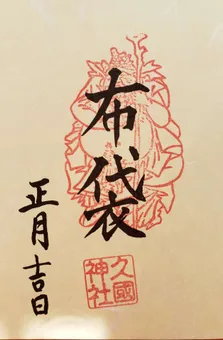 布袋
正月吉日
久國
神社